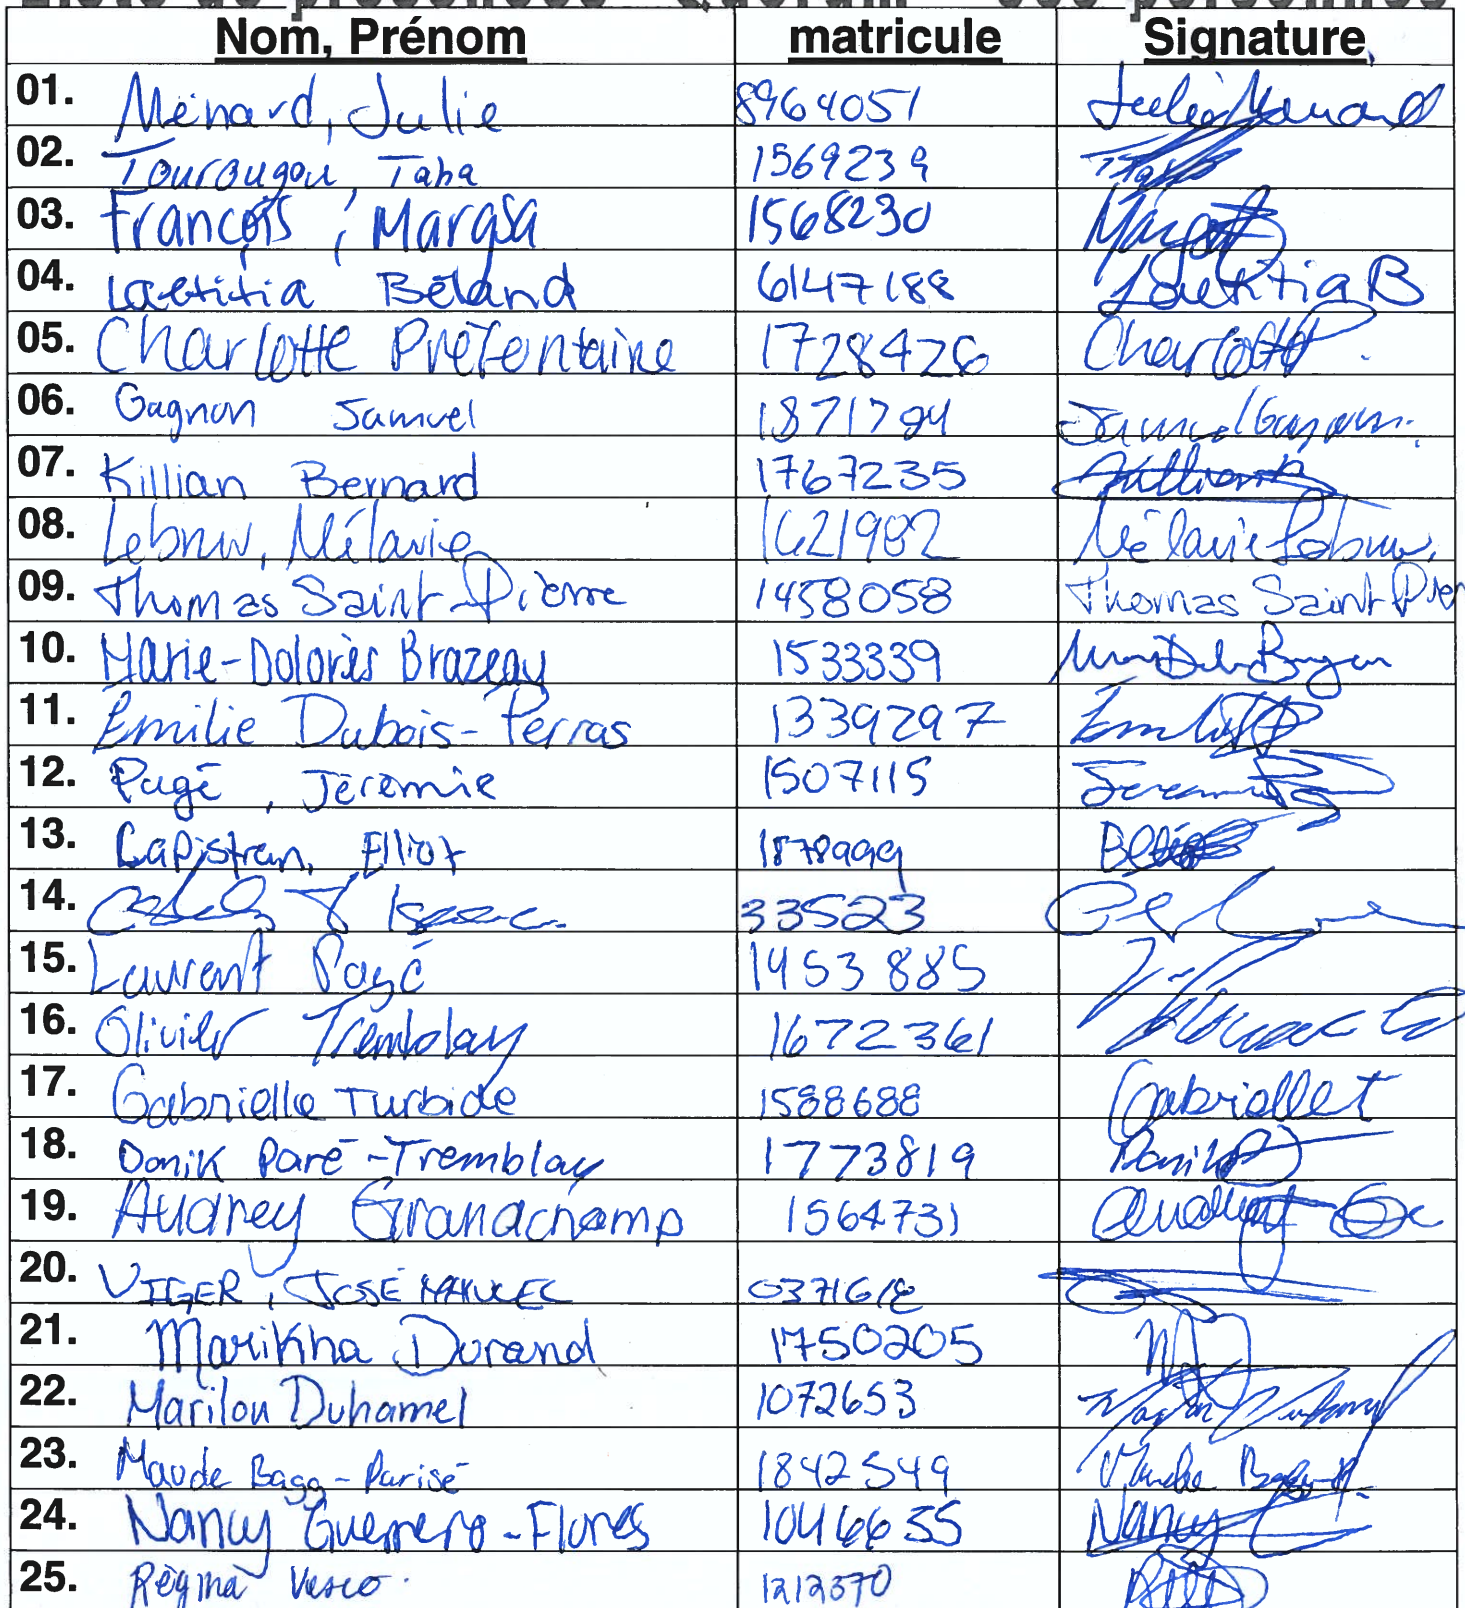 Liste de présences - Quorum - des personnes
Nom, Prénom matricule Signature
01. Ménard, Julie 8964051 Julie Menard
02. Tourougou, Taha 1569239
03. François, Margsa 1568230
04. Laetitia Béland 6147188 Laetitia B
05. Charlotte Préfontaine 1728426 Charlotte
06. Gagnon Samuel 1871794 Samuel Gagnon
07. Killian Bernard 1767235 Killian B
08. Lebrun, Mélanie 1621982 Mélanie Lebrun
09. Thomas Saint-Pierre 1458058 Thomas Saint-Pier
10. Marie-Dolorès Brazeau 1533339
11. Emilie Dubois-Perras 1339297
12. Pagé, Jérémie 1507115
13. Capistran, Elliot 1878999
14. 33523
15. Laurent Pagé 1453885
16. Olivier Tremblay 1672361
17. Gabrielle Turbide 1588688 Gabrielle T
18. Donik Paré-Tremblay 1773819
19. Audrey Grandchamp 1564731
20. VIGER, JOSÉ MANUEL 0371618
21. Marikha Durand 1750205
22. Marilou Duhamel 1072653
23. Maude Bagg-Parisé 1842549
24. Nancy Guerrero-Flores 1046655 Nancy
25. Régina Vasco 1212370